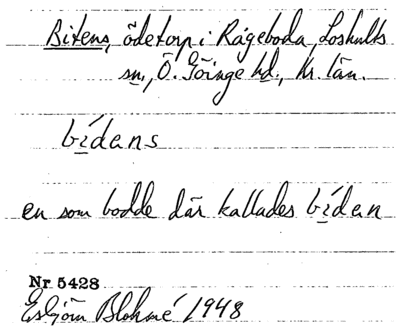 Bitens, ödetorp i Rågeboda, Loshults
sn., Ö. Göinge hd., Kr. län.
bídans
en som bodde där kallades bídan
Nr 5428
Esbjörn Blohmé 1948